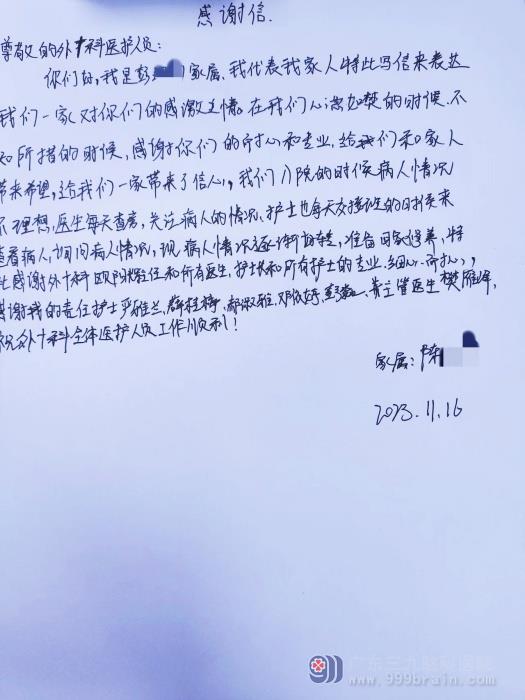 感谢信.
尊敬的外十科医护人员:
你们好,我是彭 家属,我代表我家人特此写信来表达
我们一家对你们的感激之情。在我们心急如焚的时候,不
知所措的时候,感谢你们的耐心和专业,给我们和家人
带来希望,给我们一家带来了信心,我们入院的时候病人情况
不理想,医生每天查房,关注病人的情况、护士也每天交接班的时候来
查看病人,询问病人情况,现病人情况逐渐好转,准备回家修养,特
此感谢外十科欧阳 主任和所有医生,护士长和所有护士的专业、细心、耐心,
感谢我的责任护士严雅兰,薛桂梅,郝淑雅,邓欣婷, 主管医生樊雁峰,
祝外十科全体医护人员工作顺利!
家属:陈
2023.11.16
广东三九脑科医院
www.999brain.com